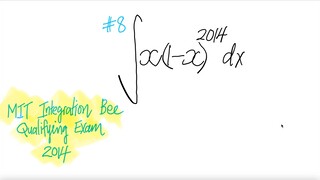 #8
∫x(1-x)^2014 dx
MIT Integration Bee
Qualifying Exam
2014